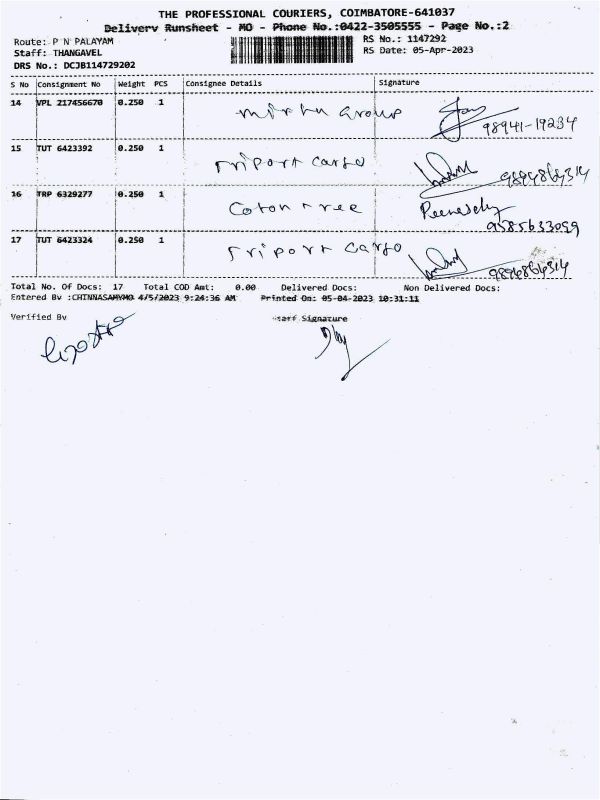 THE PROFESSIONAL COURIERS, COIMBATORE-641037
Delivery Runsheet - MO - Phone No.:0422-3505555 - Page No.:2
Route: P N PALAYAM
RS No.: 1147292
Staff: THANGAVEL
RS Date: 05-Apr-2023
DRS No.: DCJB114729202
S No Consignment No Weight PCS Consignee Details Signature
14 VPL 217456670 0.250 1 group
98941-19234
15 TUT 6423392 0.250 1 Friport cargo
9894864314
16 TRP 6329277 0.250 1 Coton tree
9585633099
17 TUT 6423324 0.250 1 Friport cargo
9894864314
Total No. Of Docs: 17 Total COD Amt: 0.00 Delivered Docs: Non Delivered Docs:
Entered By :CHINNASAMYMO 4/5/2023 9:24:36 AM Printed On: 05-04-2023 10:31:11
Verified By Staff Signature